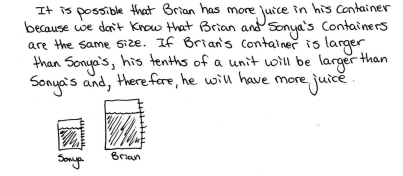 It is possible that Brian has more juice in his container
because we don't know that Brian and Sonya's Containers
are the same size. If Brian's container is larger
than Sonya's, his tenths of a unit will be larger than
Sonya's and, therefore, he will have more juice.
Sonya Brian